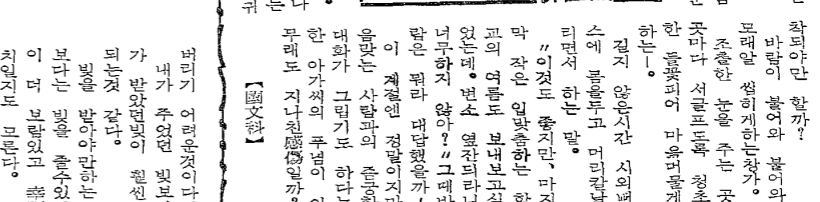 착되야만 할까?
바람이 불어와 불어와
모래알 씹히게하는창가。
조촐한 눈을 주는 곳
곳마다 서글프도록 청초
한 들꽃피어 마음머물게
하는ー。
길지 않은시간 시외뻐
스에 몸을두고 머리칼날
리면서 하는 말。
〃이것도 좋지만、마지
막 작은 일맞춤하는 학
교의 여름도 보내보고싶
었는데。번소 옆잔듸라니
너무하지 않아?〃그때바
람은 뭐라 대답했을까!
이 계절엔 정말이지마
음맞는 사람과의 즌궁한
대화가 그립기도 하다는
한 아가씨의 푸념이 아
무래도 지나친感傷일까?
【國文科】
귀는다。
버리기 어려운것이다
내가 주었던 빚보
가 받았던빚이 훨씬
되는것 같다。
빚을 받아야만하는
보다는 빚을 줄수있
이 더 보람있고 幸
치일지도 모른다。